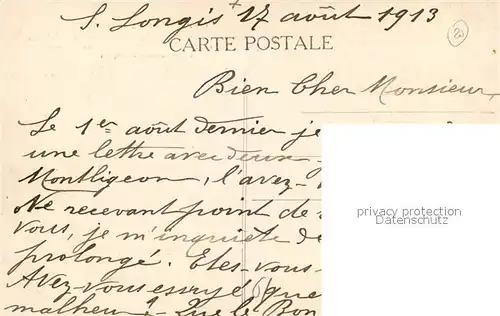 S. Longis 17 août 1913
CARTE POSTALE
Bien Cher Monsieur,
Le 1er août dernier je
une lettre avec deux
Montligeon, l'avez-
Ne recevant point de
vous, je m'inquiète de
prolongé. Etes-vous-
Avez-vous essuyé que
malheur? Que le Bon
privacy protection
Datenschutz